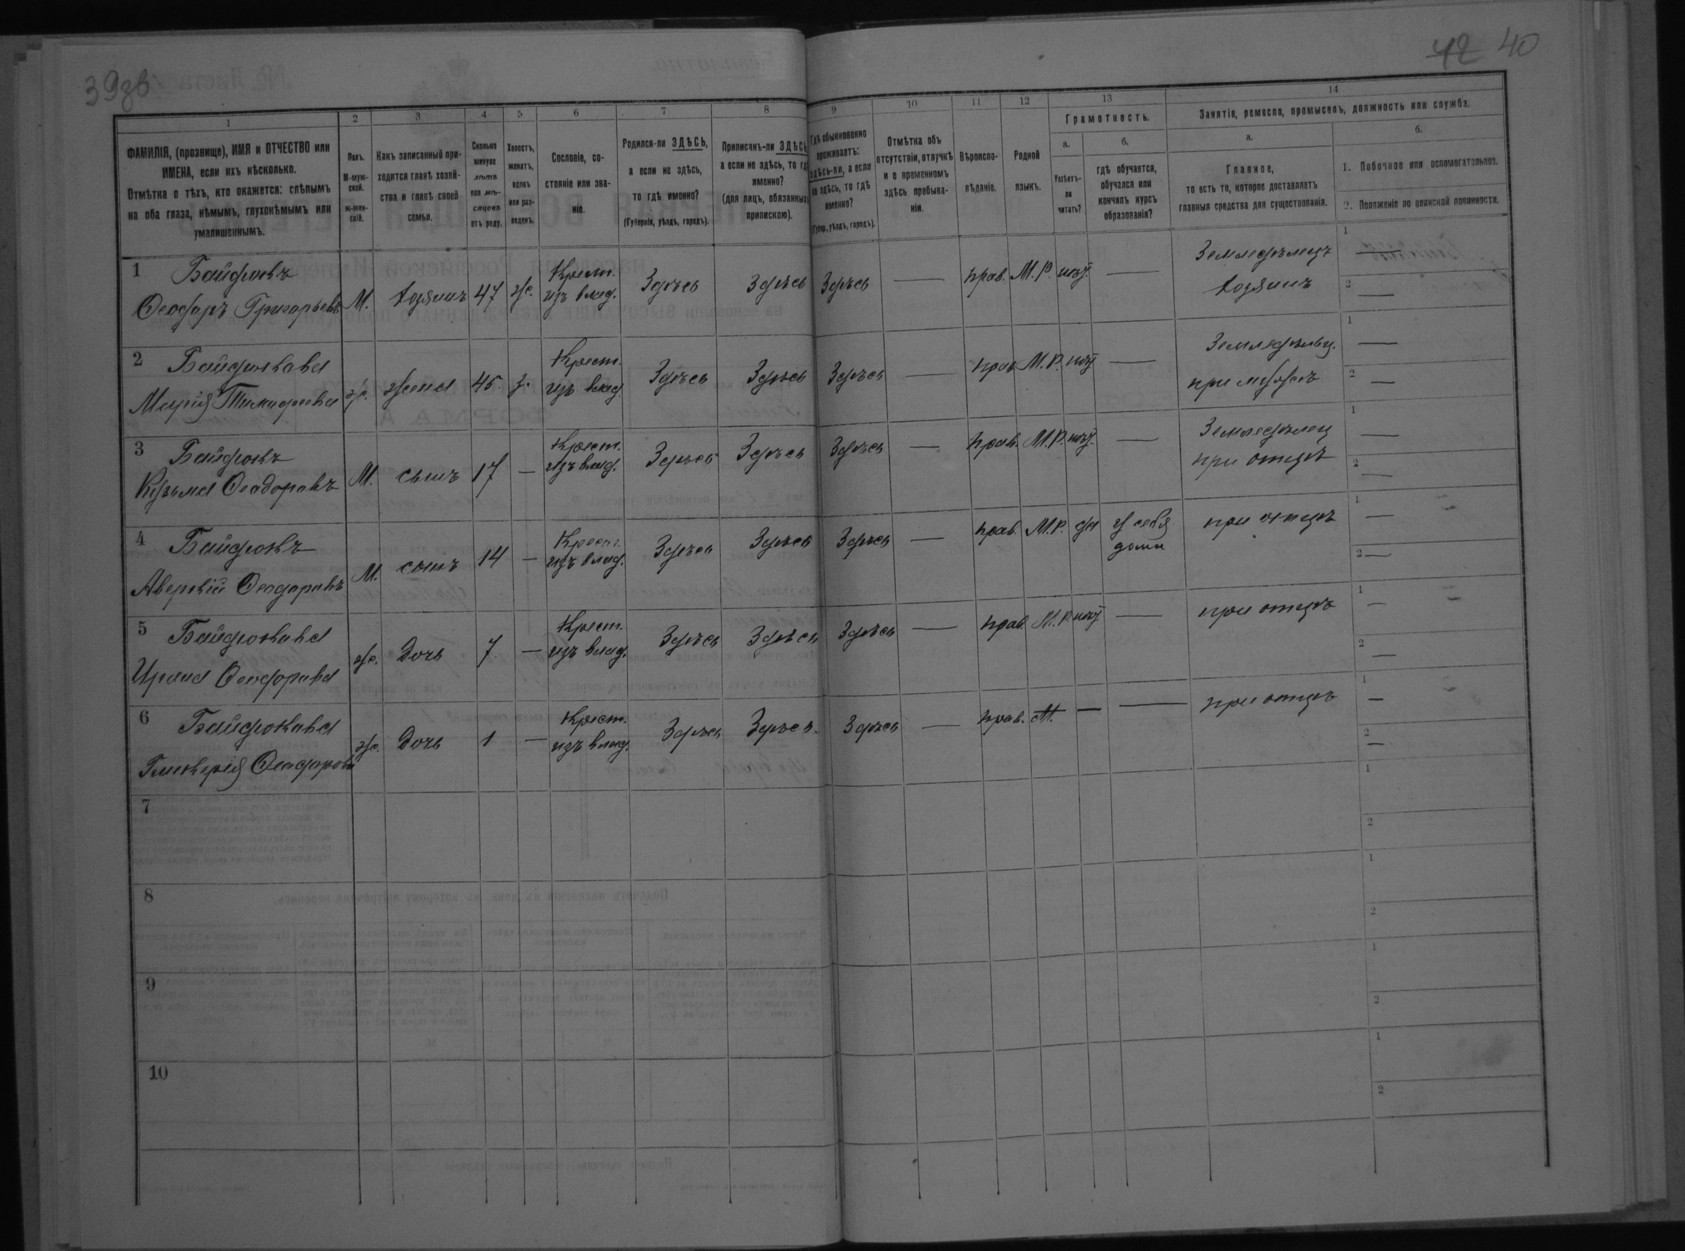 39об
42 40
1 2 3 4 5 6 7 8 9 10 11 12 13 14
ФАМИЛІЯ, (прозвище), ИМЯ и ОТЧЕСТВО или
ИМЕНА, если ихъ нѣсколько.
Отмѣтка о тѣхъ, кто окажется: слѣпымъ
на оба глаза, нѣмымъ, глухонѣмымъ или
умалишеннымъ.
Полъ.
М-муж-
ской.
ж-жен-
скій.
Какъ записанный при-
ходится главѣ хозяй-
ства и главѣ своей
семьи.
Сколько
минуло
лѣтъ
или мѣ-
сяцевъ
отъ роду.
Холостъ,
женатъ,
вдовъ
или раз-
веденъ.
Сословіе, со-
стояніе или зва-
ніе.
Родился-ли ЗДѢСЬ,
а если не здѣсь,
то гдѣ именно?
(Губернія, уѣздъ, городъ).
Приписанъ-ли ЗДѢСЬ,
а если не здѣсь, то гдѣ
именно?
(для лицъ, обязанныхъ
припискою).
Гдѣ обыкновенно
проживаетъ:
здѣсь-ли, а если
не здѣсь, то гдѣ
именно?
(Губер., уѣздъ, городъ).
Отмѣтка объ
отсутствіи, отлучкѣ
и о временномъ
здѣсь пребыва-
ніи.
Вѣроиспо-
вѣданіе.
Родной
языкъ.
Грамотность.
а.
Умѣетъ-
ли
читать?
б.
гдѣ обучается,
обучался или
кончилъ курсъ
образованія?
Занятіе, ремесло, промыселъ, должность или служба.
а.
Главное,
то есть то, которое доставляетъ
главныя средства для существованія.
б.
1. Побочное или вспомогательное.
2. Положеніе по воинской повинности.
1 Байдюкъ
Феодоръ Григорьевъ М. хозяинъ 47 ж. Крест. изъ влад. Здѣсь Здѣсь Здѣсь — прав. М.Р. нѣтъ — Земледѣлецъ хозяинъ 1 — 2 —
2 Байдюкова
Марія Тимофеева ж. жена 45 з. Крест. изъ влад. Здѣсь Здѣсь Здѣсь — прав. М.Р. нѣтъ — при мужѣ 1 — 2 —
3 Байдюкъ
Кузьма Феодоровъ М. сынъ 17 — Крест. изъ влад. Здѣсь Здѣсь Здѣсь — прав. М.Р. нѣтъ — Земледѣлец при отцѣ 1 — 2 —
4 Байдюкъ
Аверкій Феодоровъ М. сынъ 14 — Крест. изъ влад. Здѣсь Здѣсь Здѣсь — прав. М.Р. да у себя дома при отцѣ 1 — 2 —
5 Байдюкова
Ирина Феодорова ж. Дочь 7 — Крест. изъ влад. Здѣсь Здѣсь Здѣсь — прав. М.Р. нѣтъ — при отцѣ 1 — 2 —
6 Байдюкова
Гликерія Феодорова ж. Дочь 1 — Крест. изъ влад. Здѣсь Здѣсь Здѣсь — прав. М. — — при отцѣ 1 — 2 —
7 1 2
8 1 2
9 1 2
10 1 2